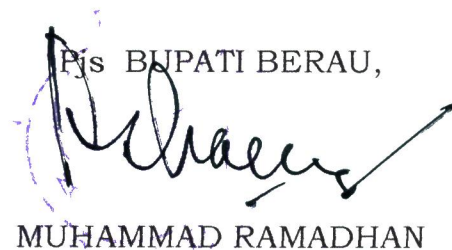 Pjs BUPATI BERAU,
MUHAMMAD RAMADHAN